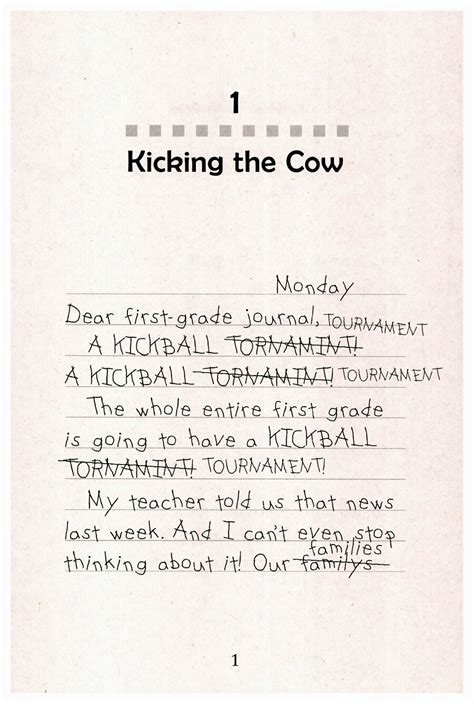 1
Kicking the Cow
Monday
Dear first-grade journal, TOURNAMENT
A KICKBALL TORNAMINT!
A KICKBALL TORNAMINT! TOURNAMENT
The whole entire first grade
is going to have a KICKBALL
TORNAMINT! TOURNAMENT!
My teacher told us that news
last week. And I can't even stop
families
thinking about it! Our familys
1